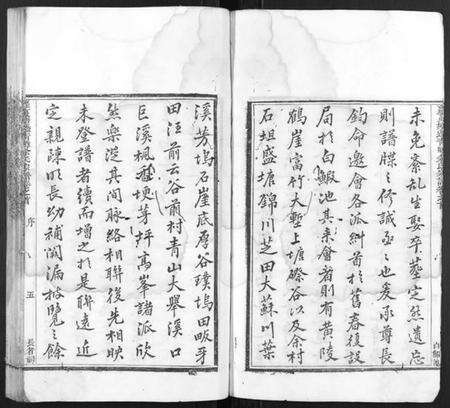 未免紊乱生娶卒葬定然遺忘
則譜牒之修誠亟亟也爰承尊長
鈞命邀會各派糾首於舊春復設
局於白鰕池其来會者則有黄陵
鶴崖富竹大塹上塘磜谷以及余村
石坦盛塘錦川芝田大蘇川葉
溪芳塢石崖底厚谷璞塢田畈牙
田汪前云谷前村青山大舉溪口
巨溪楓種埂芽坪高峯諸派欣
然樂從其間脉絡相聯後先相映
未登譜者續而增之於是聯遠近
定親疎明長幼補闕漏披覽之餘
序
八
五